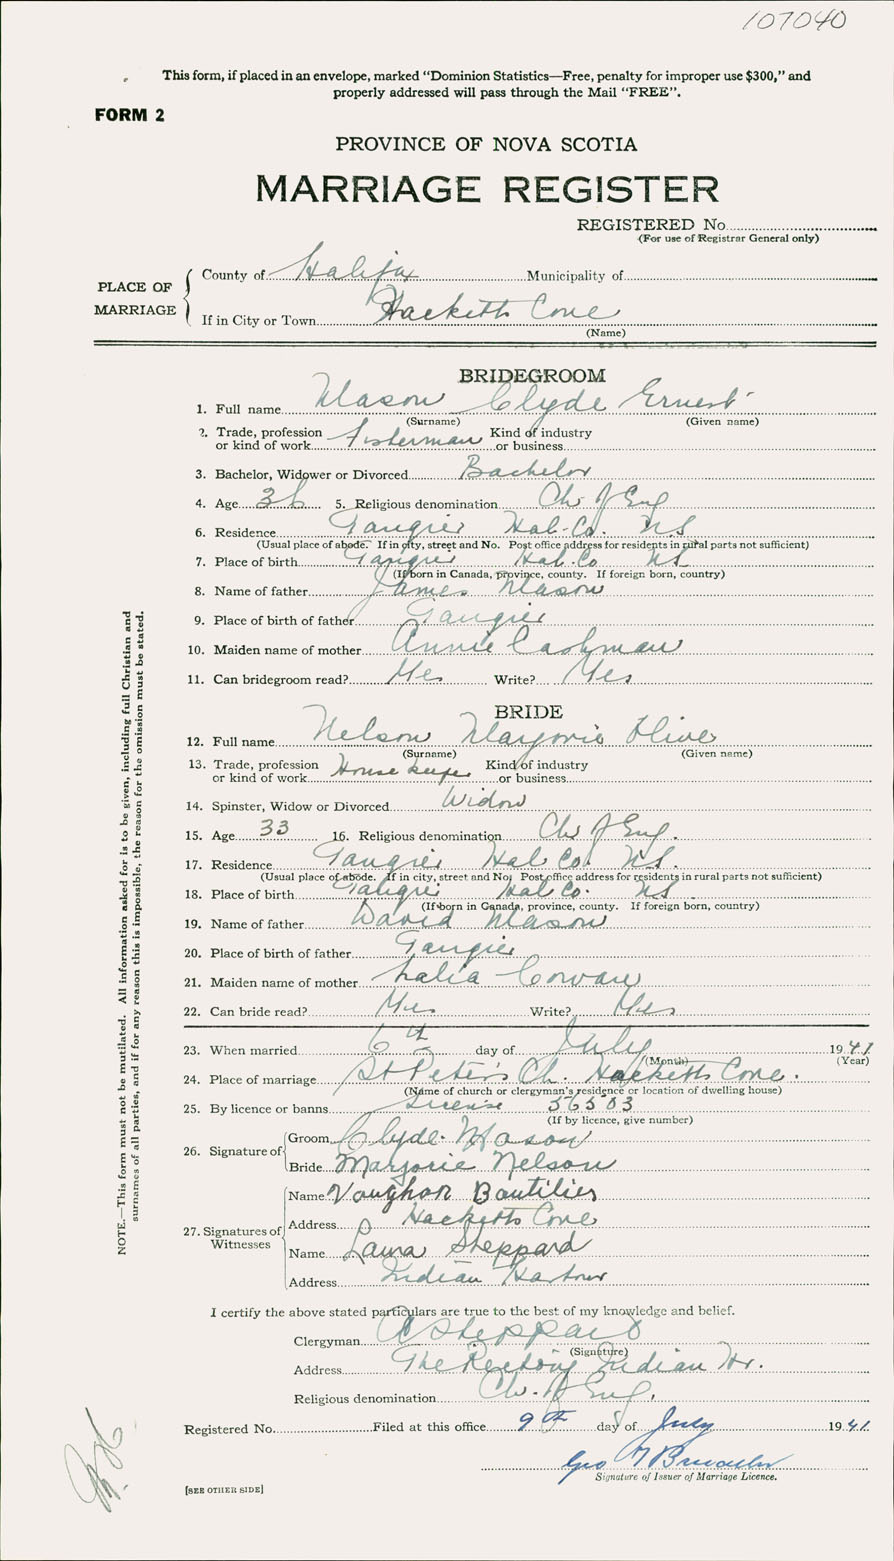 107040
This form, if placed in an envelope, marked “Dominion Statistics—Free, penalty for improper use $300,” and
properly addressed will pass through the Mail “FREE”.
FORM 2
PROVINCE OF NOVA SCOTIA
MARRIAGE REGISTER
REGISTERED No.
(For use of Registrar General only)
PLACE OF MARRIAGE
County of Halifax Municipality of
If in City or Town Hacketts Cove
(Name)
BRIDEGROOM
1. Full name Mason Clyde Ernest
(Surname) (Given name)
2. Trade, profession or kind of work Fisherman Kind of industry or business
3. Bachelor, Widower or Divorced Bachelor
4. Age 36 5. Religious denomination Ch of Eng
6. Residence Tangier Hal. Co. N.S.
(Usual place of abode. If in city, street and No. Post office address for residents in rural parts not sufficient)
7. Place of birth Tangier Hal. Co NS
(If born in Canada, province, county. If foreign born, country)
8. Name of father James Mason
9. Place of birth of father Tangier
10. Maiden name of mother Annie Cashman
11. Can bridegroom read? Yes Write? Yes
BRIDE
12. Full name Nelson Marjorie Olive
(Surname) (Given name)
13. Trade, profession or kind of work House keeper Kind of industry or business
14. Spinster, Widow or Divorced Widow
15. Age 33 16. Religious denomination Ch of Eng.
17. Residence Tangier Hal Co. NS.
(Usual place of abode. If in city, street and No. Post office address for residents in rural parts not sufficient)
18. Place of birth Tangier Hal Co. NS
(If born in Canada, province, county. If foreign born, country)
19. Name of father David Mason
20. Place of birth of father Tangier
21. Maiden name of mother Lalia Cowan
22. Can bride read? Yes Write? Yes
23. When married 6th day of July 1941
(Month) (Year)
24. Place of marriage St Peter's Ch. Hacketts Cove.
(Name of church or clergyman's residence or location of dwelling house)
25. By licence or banns License 56503
(If by licence, give number)
26. Signature of
Groom Clyde Mason
Bride Marjorie Nelson
27. Signatures of Witnesses
Name Vaughan Boutilier
Address Hacketts Cove
Name Laura Sheppard
Address Indian Harbour
I certify the above stated particulars are true to the best of my knowledge and belief.
Clergyman A Sheppard
(Signature)
Address The Rectory Indian Hr.
Religious denomination Ch. of Eng.
Registered No. Filed at this office 9th day of July 1941
Geo
Signature of Issuer of Marriage Licence.
[SEE OTHER SIDE]
NOTE.—This form must not be mutilated. All information asked for is to be given, including full Christian and
surnames of all parties, and if for any reason this is impossible, the reason for the omission must be stated.